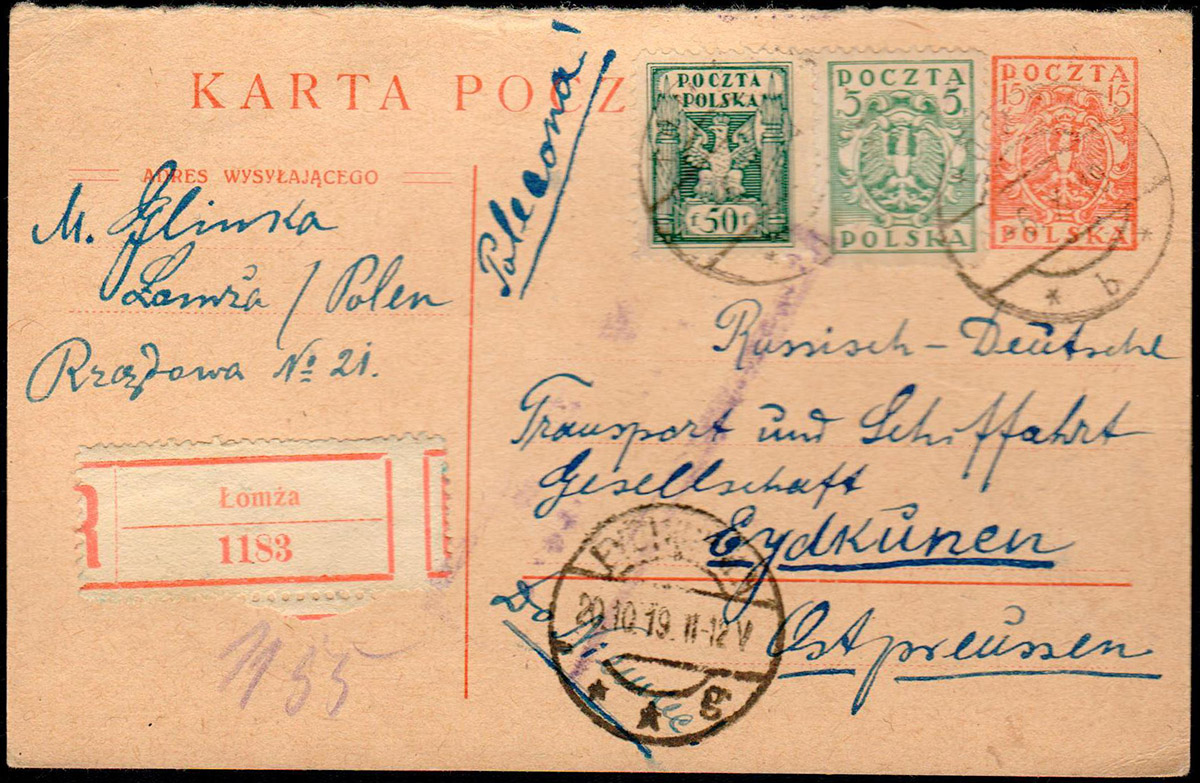 KARTA POCZ
Polecona!
POCZTA
POLSKA
f 50 f
POCZTA
5 5
POLSKA
POCZTA
15 15
POLSKA
b
ADRES WYSYŁAJĄCEGO
M. Glinka
Łomża / Polen
Rządowa No 21.
R
Łomża
1183
1155
Russisch-Deutsche
Transport und Schiffahrt
Gesellschaft
Eydkunen
Ostpreussen
20.10.19. 11-12 V
g